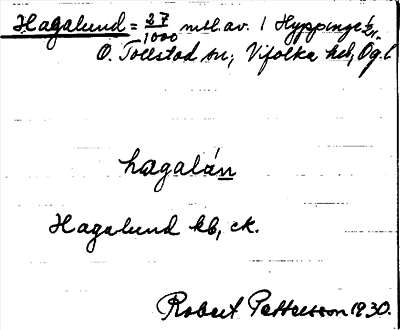 Hagalund = 27/1000 mtl. av. 1 Hyppinge
Ö. Tollstad sn, Vifolka hd, Ög. l
hagalán
Hagalund kb, ek.
Robert Pettersson 1930.